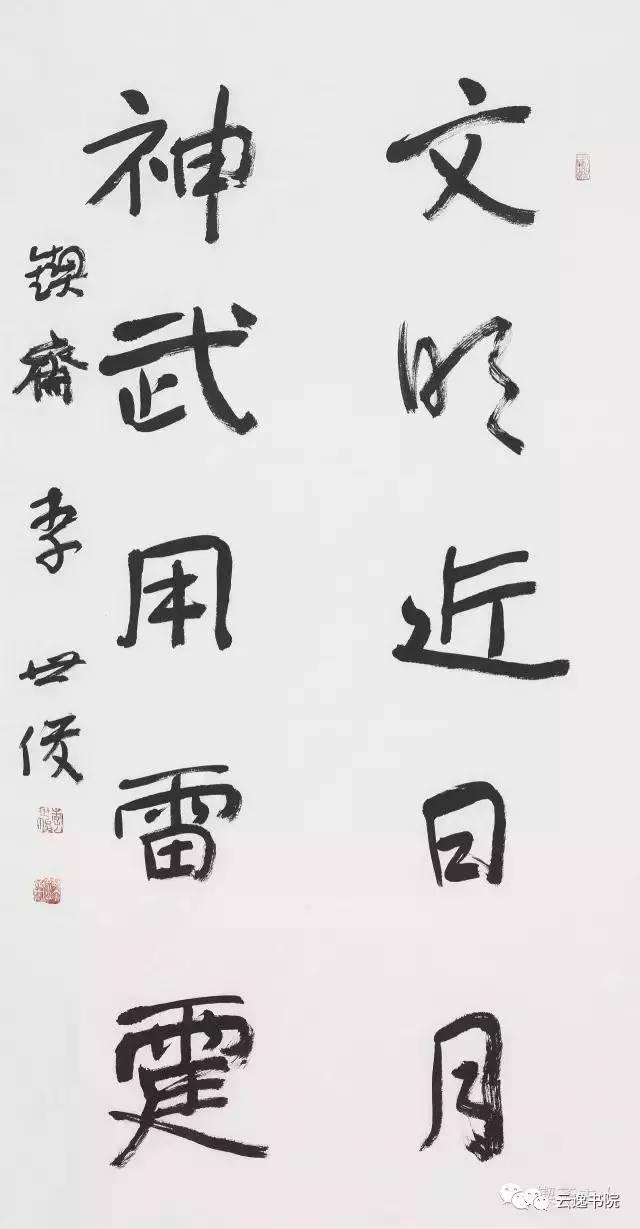 文明近日月
神武用雷霆
锲斋 李世俊
云逸书院